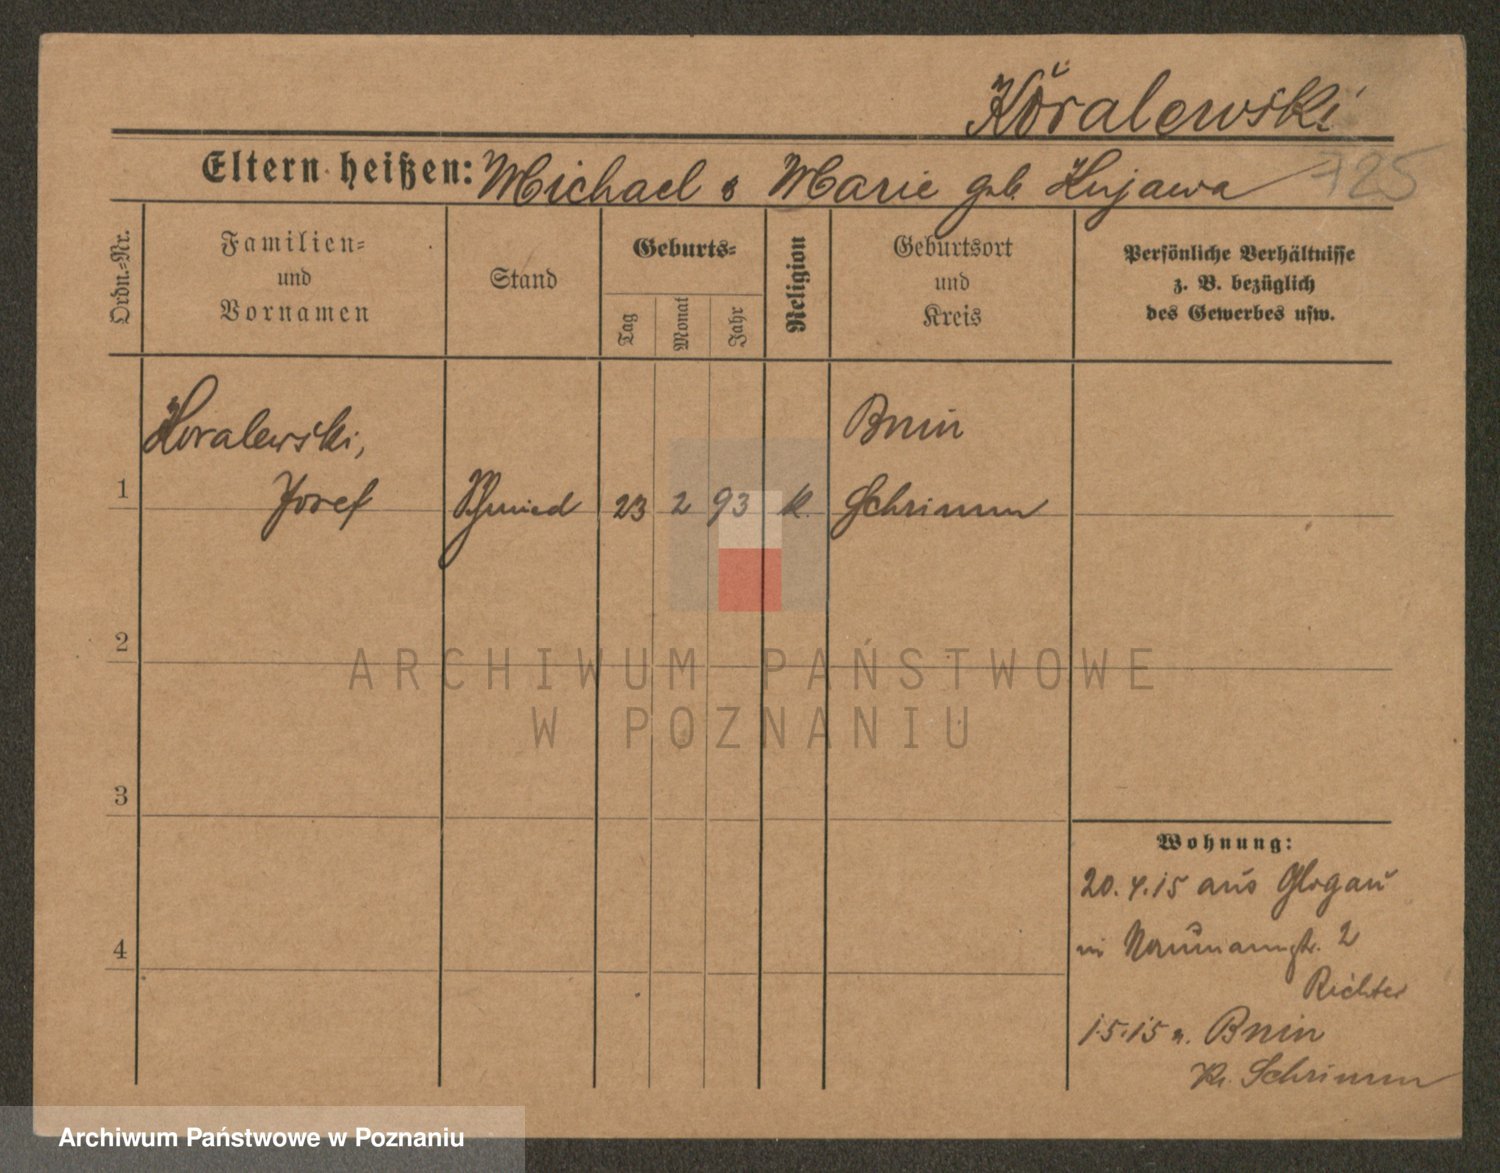 Koralewski
Eltern heißen: Michael & Marie geb. Kujawa
725
Ordn.-Nr.
Familien-
und
Vornamen
Stand
Geburts-
Tag
Monat
Jahr
Religion
Geburtsort
und
Kreis
Persönliche Verhältnisse
z. B. bezüglich
des Gewerbes usw.
Koralewski,
Josef
Schmied
23
2
93
k.
Bnin
Schrimm
1
2
3
4
Wohnung:
20.4.15 aus Glogau
in Naumannstr. 2
Richter
1.5.15 n. Bnin
Kr. Schrimm
ARCHIWUM PAŃSTWOWE
W POZNANIU
Archiwum Państwowe w Poznaniu